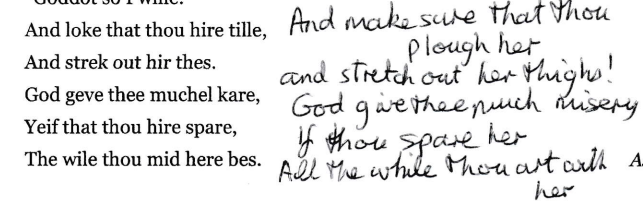 "Goddot so I wille.
And loke that thou hire tille,
And strek out hir thes.
God geve thee muchel kare,
Yeif that thou hire spare,
The wile thou mid here bes.
And make sure that thou
plough her
and stretch out her thighs!
God give thee much misery
If thou spare her
All the while thou art with
her
A.